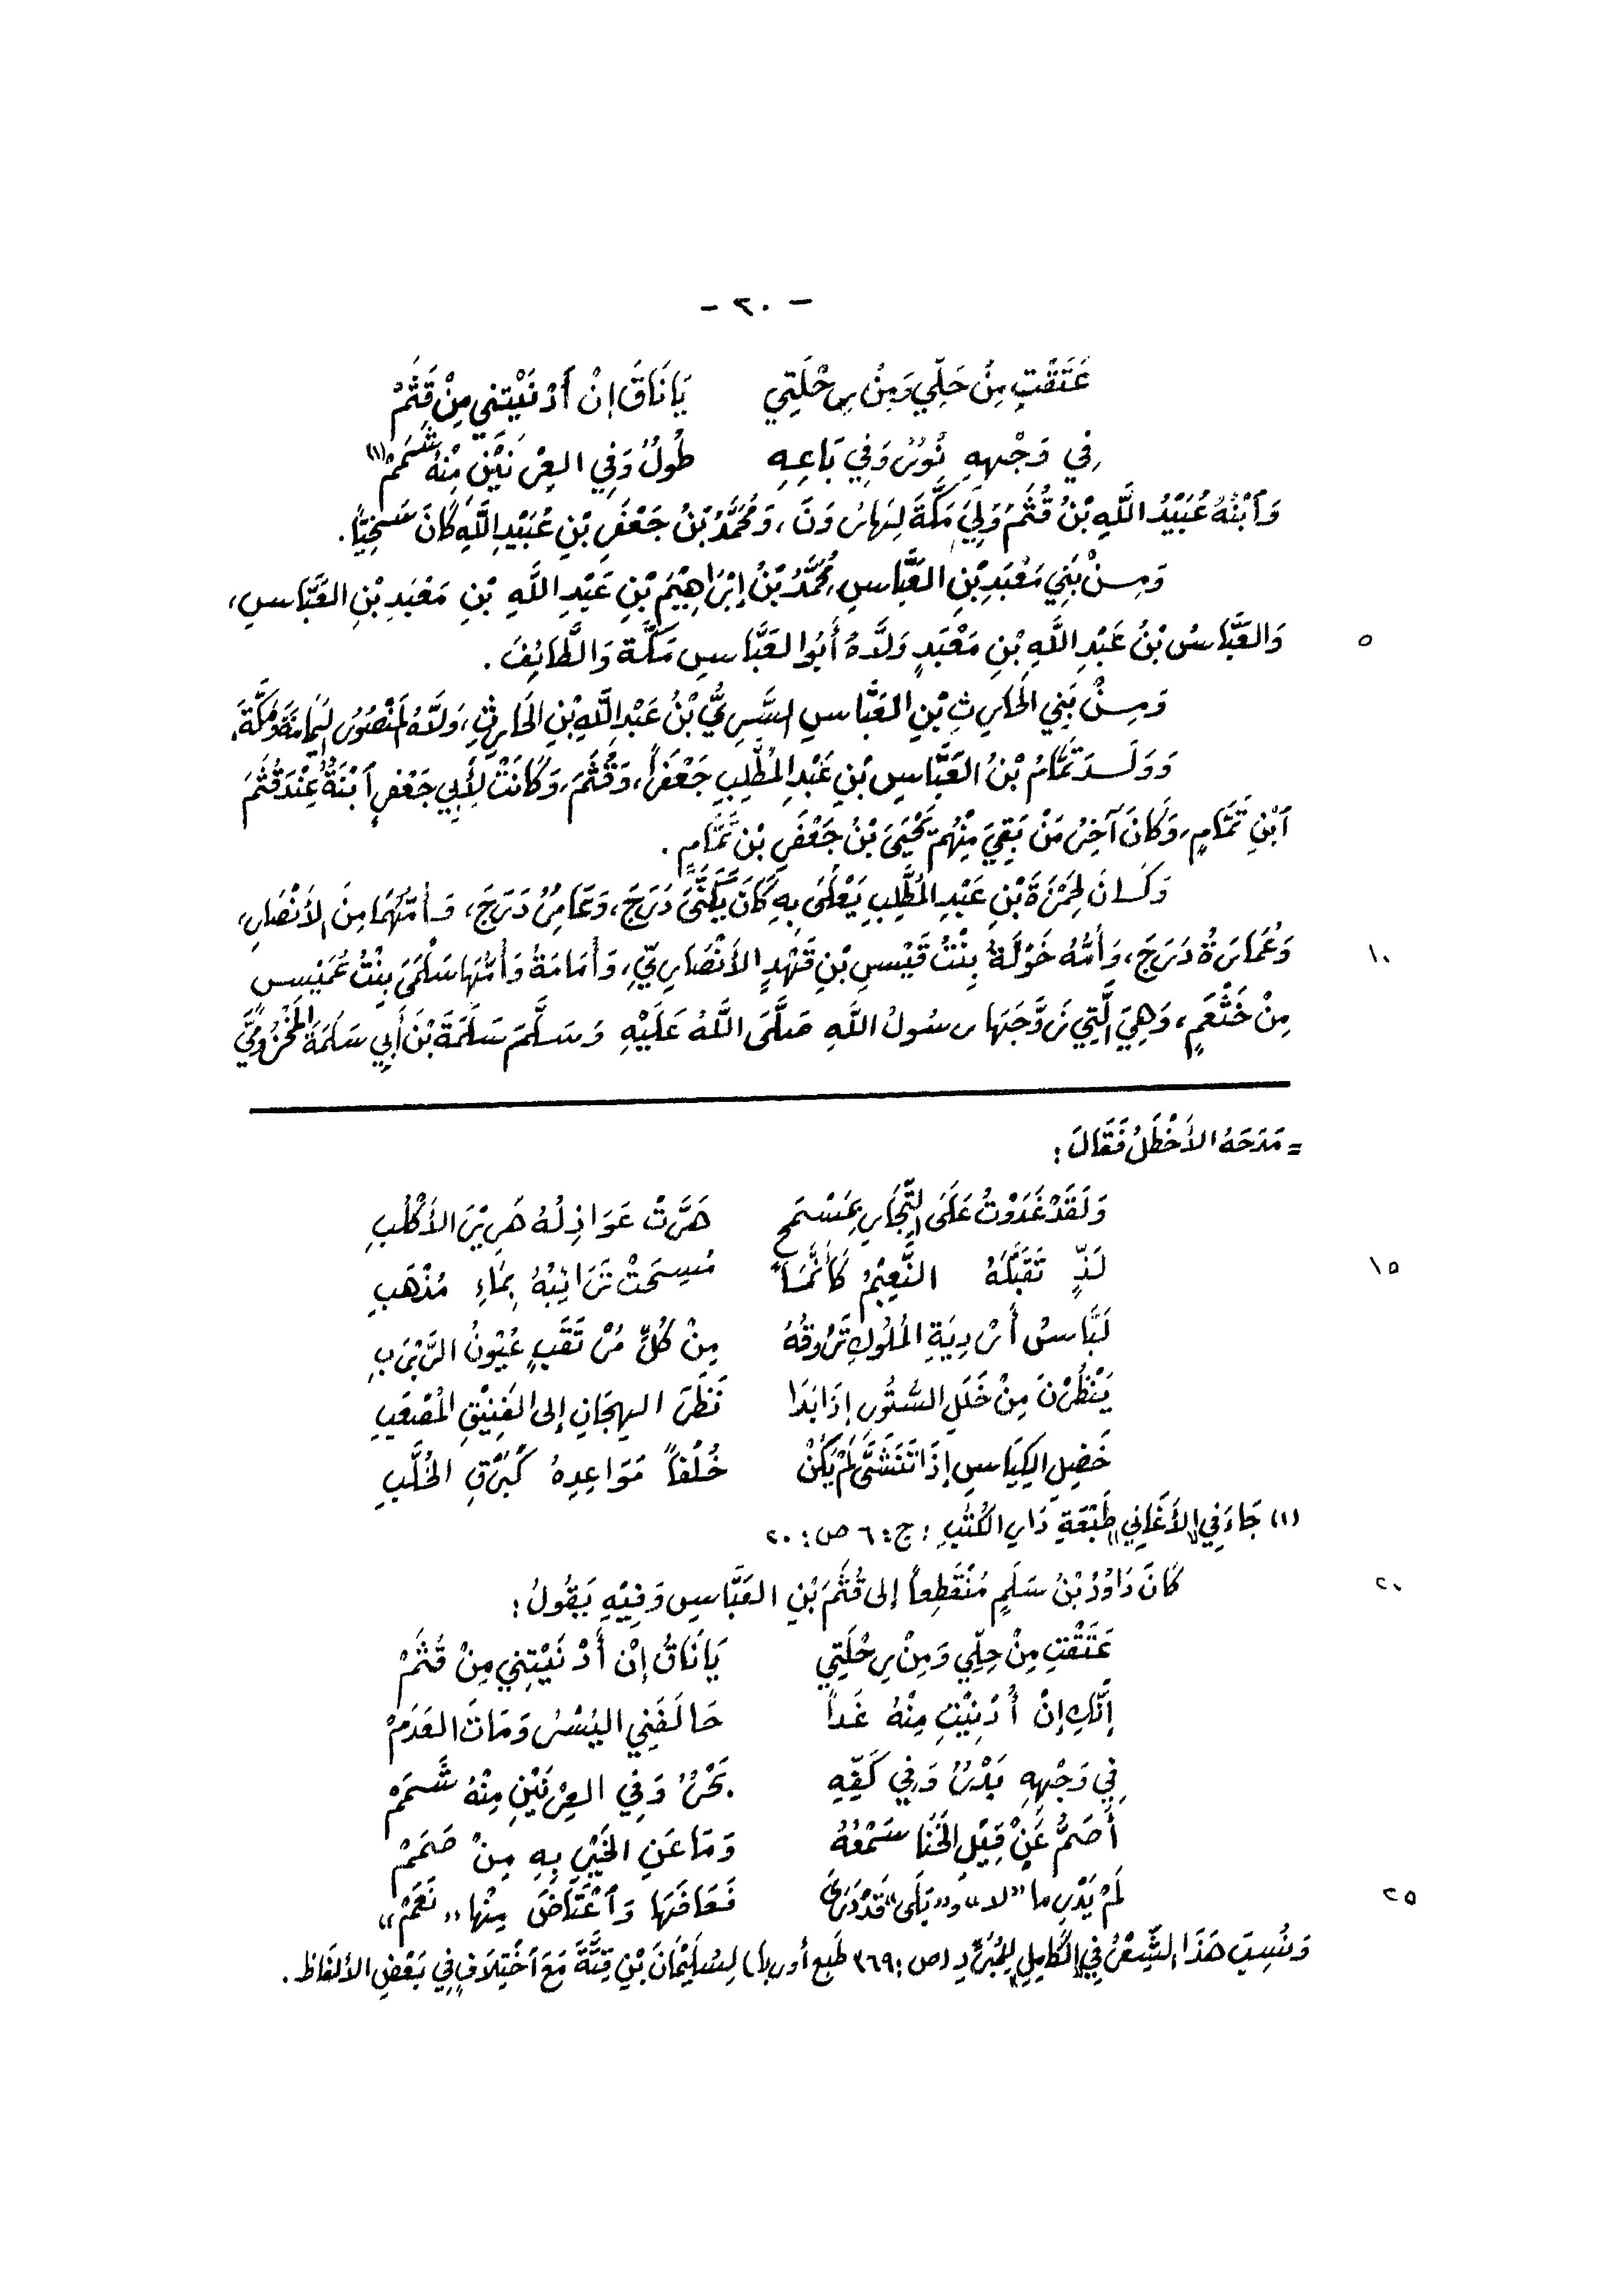 - ٣٠ -
عَتَقْتِ مِنْ حَلِّي وَمِنْ رِحْلَتِي يَا نَاقَ إِنْ أَدْنَيْتِنِي مِنْ قُثَمْ
فِي وَجْهِهِ نُورٌ وَفِي بَاعِهِ طُولٌ وَفِي العِرْنَيْنِ مِنْهُ شَمَمْ (١)
وَٱبْنُهُ عُبَيْدُ اللَّهِ بْنُ قُثَمَ وَلِيَ مَكَّةَ لِهَارُونَ، وَمُحَمَّدُ بْنُ جَعْفَرِ بْنِ عُبَيْدِ اللَّهِ كَانَ سَخِيَّاً.
وَمِنْ بَنِي مَعْبَدِ بْنِ العَبَّاسِ مُحَمَّدُ بْنُ إِبْرَاهِيْمَ بْنِ عَبْدِ اللَّهِ بْنِ مَعْبَدِ بْنِ العَبَّاسِ،
وَالعَبَّاسُ بْنُ عَبْدِ اللَّهِ بْنِ مَعْبَدٍ وَلَّاهُ أَبُو العَبَّاسِ مَكَّةَ وَالطَّائِفَ. ٥
وَمِنْ بَنِي الحَارِثِ بْنِ العَبَّاسِ السَّرِيُّ بْنُ عَبْدِ اللَّهِ بْنِ الحَارِثِ، وَلَّاهُ المَنْصُورُ اليَمَامَةَ وَمَكَّةَ.
وَوَلَدَ تَمَّامُ بْنُ العَبَّاسِ بْنِ عَبْدِ المُطَّلِبِ جَعْفَراً، وَقُثَمَ، وَكَانَتْ لِأَبِي جَعْفَرٍ ٱبْنَةٌ عِنْدَ قُثَمَ
ٱبْنِ تَمَّامٍ، وَكَانَ آخِرُ مَنْ بَقِيَ مِنْهُمْ يَحْيَىَ بْنُ جَعْفَرِ بْنِ تَمَّامٍ.
وَكَانَ لِحَمْزَةَ بْنِ عَبْدِ المُطَّلِبِ يَعْلَىَ بِهِ كَانَ يُكَنَّىَ دَرَجَ، وَعَامِرٌ دَرَجَ، وَأُمُّهُمَا مِنَ الأَنْصَارِ،
وَعُمَارَةُ دَرَجَ، وَأُمُّهُ خَوْلَةُ بِنْتُ قَيْسِ بْنِ قَهْدٍ الأَنْصَارِيِّ، وَأُمَامَةُ وَأُمُّهَا سَلْمَىَ بِنْتُ عُمَيْسٍ ١٠
مِنْ خَثْعَمٍ، وَهِيَ الَّتِي زَوَّجَهَا رَسُولُ اللَّهِ صَلَّىَ اللَّهُ عَلَيْهِ وَسَلَّمَ سَلَمَةَ بْنَ أَبِي سَلَمَةَ المَخْزُومِيَّ
= مَدَحَهُ الأَخْطَلُ فَقَالَ:
وَلَقَدْ غَدَوْتُ عَلَىَ التِّجَارِ بِمُسْمِحٍ هَرَّتْ عَوَاذِلُهُ هَرِيْرَ الأَكْلُبِ
لَذٍّ تَقَبَّلَهُ النَّعِيْمُ كَأَنَّمَا مُسِحَتْ تَرَائِبُهُ بِمَاءٍ مُذْهَبِ ١٥
لَبَّاسُ أَرْدِيَةِ المُلُوكِ تَرُوقُهُ مِنْ كُلِّ مُرْتَقَبٍ عُيُونُ الرَّبْرَبِ
يَنْظُرْنَ مِنْ خَلَلِ السُّتُورِ إِذَا بَدَا نَظَرَ الهِجَانِ إِلى الفَنِيْقِ المُصْعَبِ
خَضِلِ الكِيَاسِ إِذَا تَنَشَّىَ لَمْ يَكُنْ خُلْفاً مَوَاعِدِهُ كَبَرْقِ الخُلَّبِ
(١) جَاءَ فِي «الأَغَانِي» طَبْعَةِ دَارِ الكُتُبِ: ج: ٦ ص: ٢٠
كَانَ دَاوُدُ بْنُ سَلَمٍ مُنْقَطِعاً إِلى قُثَمَ بْنِ العَبَّاسِ وَفِيْهِ يَقُولُ: ٢٠
عَتَقْتِ مِنْ حِلِّي وَمِنْ رِحْلَتِي يَا نَاقُ إِنْ أَدْنَيْتِنِي مِنْ قُثَمْ
إِنَّكِ إِنْ أُدْنِيْتِ مِنْهُ غَداً حَالَفَنِي اليُسْرُ وَمَاتَ العَدَمْ
فِي وَجْهِهِ بَدْرٌ وَفِي كَفِّهِ بَحْرٌ وَفِي العِرْنَيْنِ مِنْهُ شَمَمْ
أَصَمُّ عَنْ قِيْلِ الخَنَا سَمْعُهُ وَمَا عَنِ الخَيْرِ بِهِ مِنْ صَمَمْ
لَمْ يَدْرِ ما «لا» و«بَلَىَ» قَدْ دَرَىَ فَعَافَهَا وَٱعْتَاضَ مِنْها «نَعَمْ» ٢٥
وَنُسِبَ هَذَا الشِّعْرُ فِي «الكَامِلِ» لِلمُبَرِّدِ (ص: ٣٦٩ طَبع أوربا) لِسُلَيْمَانَ بْنِ قِتَّةَ مَعَ ٱخْتِلَافٍ فِي بَعْضِ الأَلفَاظِ.